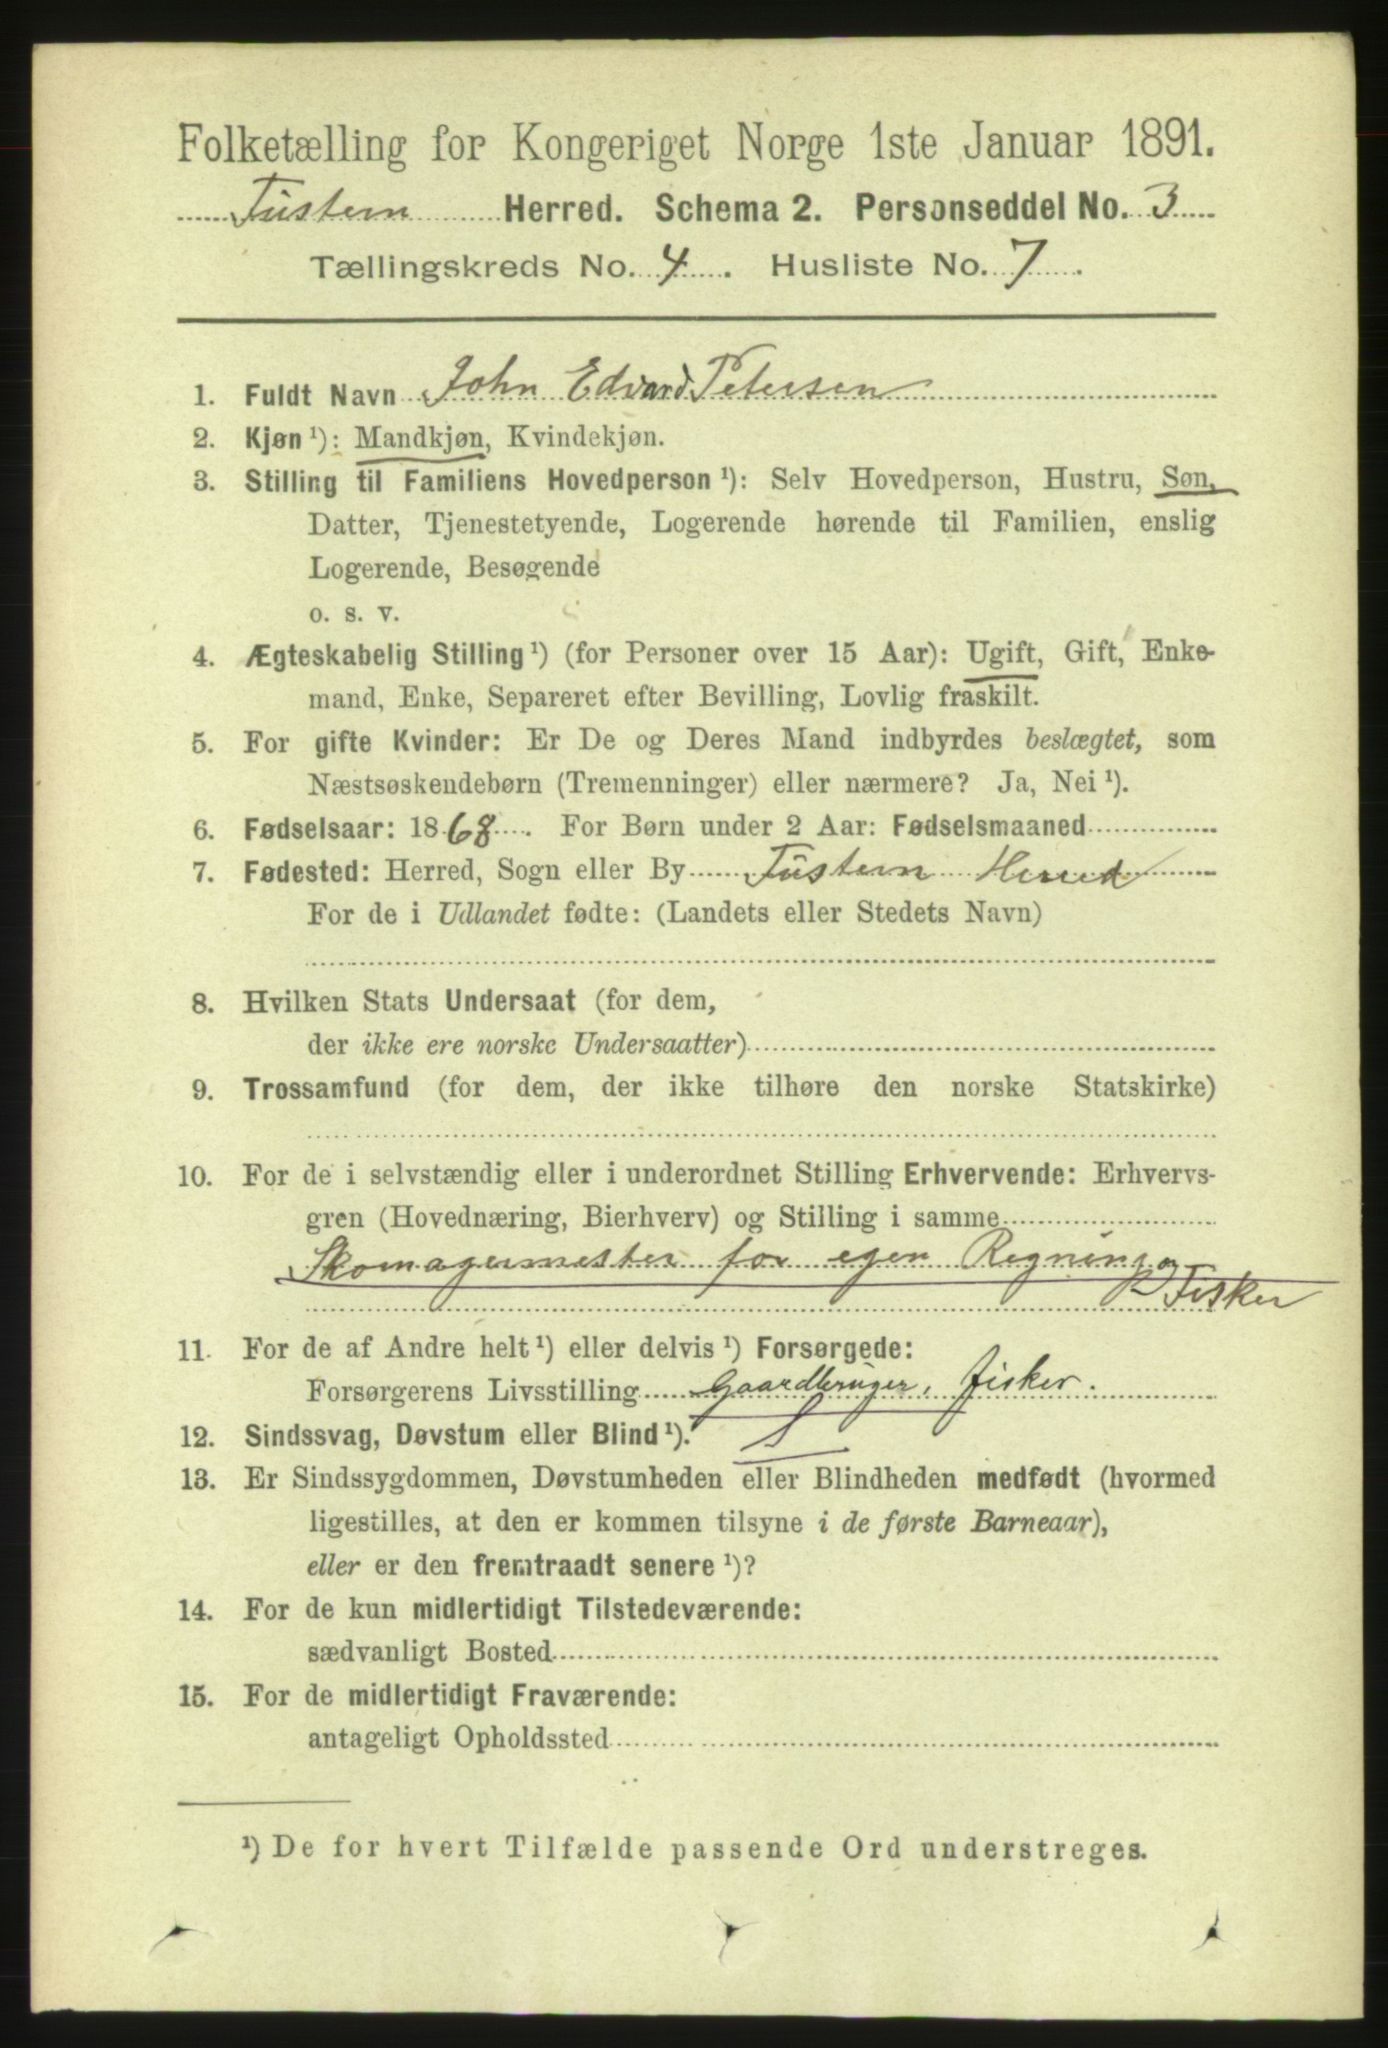 Folketælling for Kongeriget Norge 1ste Januar 1891.
Tustern Herred. Schema 2. Personseddel No. 3
Tællingskreds No. 4. Husliste No. 7.
1. Fuldt Navn John Edvard Petersen
2. Kjøn ¹): Mandkjøn, Kvindekjøn.
3. Stilling til Familiens Hovedperson ¹): Selv Hovedperson, Hustru, Søn,
Datter, Tjenestetyende, Logerende hørende til Familien, enslig
Logerende, Besøgende
o. s. v.
4. Ægteskabelig Stilling ¹) (for Personer over 15 Aar): Ugift, Gift, Enke-
mand, Enke, Separeret efter Bevilling, Lovlig fraskilt.
5. For gifte Kvinder: Er De og Deres Mand indbyrdes beslægtet, som
Næstsøskendebørn (Tremenninger) eller nærmere? Ja, Nei ¹).
6. Fødselsaar: 1868. For Børn under 2 Aar: Fødselsmaaned
7. Fødested: Herred, Sogn eller By Tustern Herred
For de i Udlandet fødte: (Landets eller Stedets Navn)
8. Hvilken Stats Undersaat (for dem,
der ikke ere norske Undersaatter)
9. Trossamfund (for dem, der ikke tilhøre den norske Statskirke)
10. For de i selvstændig eller i underordnet Stilling Erhvervende: Erhvervs-
gren (Hovednæring, Bierhverv) og Stilling i samme
Skomagermester for egen Regning og
Fisker
11. For de af Andre helt ¹) eller delvis ¹) Forsørgede:
Forsørgerens Livsstilling Gaardbruger, Fisker.
12. Sindssvag, Døvstum eller Blind ¹).
13. Er Sindssygdommen, Døvstumheden eller Blindheden medfødt (hvormed
ligestilles, at den er kommen tilsyne i de første Barneaar),
eller er den fremtraadt senere ¹)?
14. For de kun midlertidigt Tilstedeværende:
sædvanligt Bosted
15. For de midlertidigt Fraværende:
antageligt Opholdssted
¹) De for hvert Tilfælde passende Ord understreges.